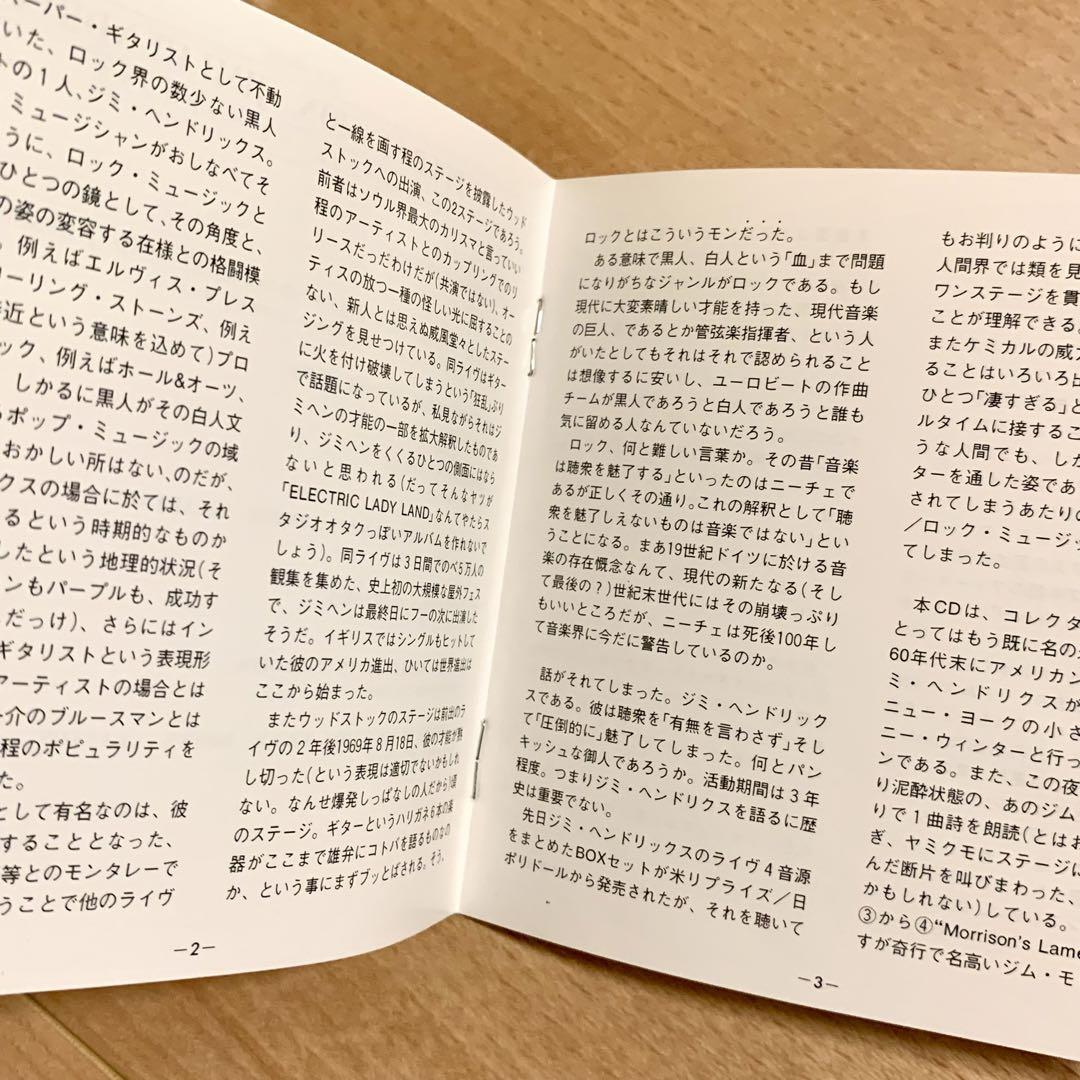 ーパー・ギタリストとして不動
いた、ロック界の数少ない黒人
トの1人、ジミ・ヘンドリックス。
ミュージシャンがおしなべてそ
うに、ロック・ミュージックと
ひとつの鏡として、その角度と、
の姿の変容する在様との格闘模
。例えばエルヴィス・プレス
ーリング・ストーンズ、例え
接近という意味を込めて)プロ
ック、例えばホール&オーツ、
しかるに黒人がその白人文
らポップ・ミュージックの域
おかしい所はない、のだが、
クスの場合に於ては、それ
るという時期的なものか
したという地理的状況(そ
ンもパープルも、成功す
だっけ)、さらにはイン
ギタリストという表現形
アーティストの場合とは
一介のブルースマンとは
程のポピュラリティを
た。
として有名なのは、彼
することとなった、
等とのモンタレーで
うことで他のライヴ
と一線を画す程のステージを披露したウッド
ストックへの出演、この2ステージであろう。
前者はソウル界最大のカリスマと言っていい
程のアーティストとのカップリングでのリ
リースだっだわけだが(共演ではない)、オー
ティスの放つ一種の怪しい光に屈することの
ない、新人とは思えぬ威風堂々としたステー
ジングを見せつけている。同ライヴはギター
に火を付け破壊してしまうという「狂乱」ぶり
で話題になっているが、私見ながらそれはジ
ミヘンの才能の一部を拡大解釈したものであ
り、ジミヘンをくくるひとつの側面にはなら
ないと思われる(だってそんなヤツが
「ELECTRIC LADY LAND」なんてやたらス
タジオオタクっぽいアルバムを作れないで
しょう)。同ライヴは3日間でのべ5万人の
観集を集めた、史上初の大規模な屋外フェス
で、ジミヘンは最終日にフーの次に出演した
そうだ。イギリスではシングルもヒットして
いた彼のアメリカ進出、ひいては世界進出は
ここから始まった。
またウッドストックのステージは前出のラ
イヴの2年後1969年8月18日、彼の才能が熟
し切った(という表現は適切でないかもしれ
ない。なんせ爆発しっぱなしの人だから)頃
のステージ。ギターというハリガネ6本の楽
器がここまで雄弁にコトバを語るものなの
か、という事にまずブッとばされる。そう、
—2—
ロックとはこういうモンだった。
ある意味で黒人、白人という「血」まで問題
になりがちなジャンルがロックである。もし
現代に大変素晴しい才能を持った、現代音楽
の巨人、であるとか管弦楽指揮者、という人
がいたとしてもそれはそれで認められること
は想像するに安いし、ユーロビートの作曲
チームが黒人であろうと白人であろうと誰も
気に留める人なんていないだろう。
ロック、何と難しい言葉か。その昔「音楽
は聴衆を魅了する」といったのはニーチェで
あるが正しくその通り。これの解釈として「聴
衆を魅了しえないものは音楽ではない」とい
うことになる。まあ19世紀ドイツに於ける音
楽の存在概念なんて、現代の新たなる(そし
て最後の?)世紀末世代にはその崩壊っぷり
もいいところだが、ニーチェは死後100年し
て音楽界に今だに警告しているのか。
話がそれてしまった。ジミ・ヘンドリック
スである。彼は聴衆を「有無を言わさず」そし
て「圧倒的に」魅了してしまった。何とパン
キッシュな御人であろうか。活動期間は3年
程度。つまりジミ・ヘンドリクスを語るに歴
史は重要でない。
先日ジミ・ヘンドリックスのライヴ4音源
をまとめたBOXセットが米リプライズ/日
ポリドールから発売されたが、それを聴いて
—3—
もお判りのように
人間界では類を見
ワンステージを貫
ことが理解できる。
またケミカルの威力
ることはいろいろ出
ひとつ「凄すぎる」と
ルタイムに接するこ
うな人間でも、しか
ターを通した姿であ
されてしまうあたりの
/ロック・ミュージッ
てしまった。
本CDは、コレクタ
とってはもう既に名の
60年代末にアメリカン
ミ・ヘンドリクスが
ニュー・ヨークの小さ
ニー・ウィンターと行っ
ンである。また、この夜
り泥酔状態の、あのジム
りで1曲詩を朗読(とはお
ぎ、ヤミクモにステージに
んだ断片を叫びまわった、
かもしれない)している。
③から④“Morrison's Lame
すが奇行で名高いジム・モ